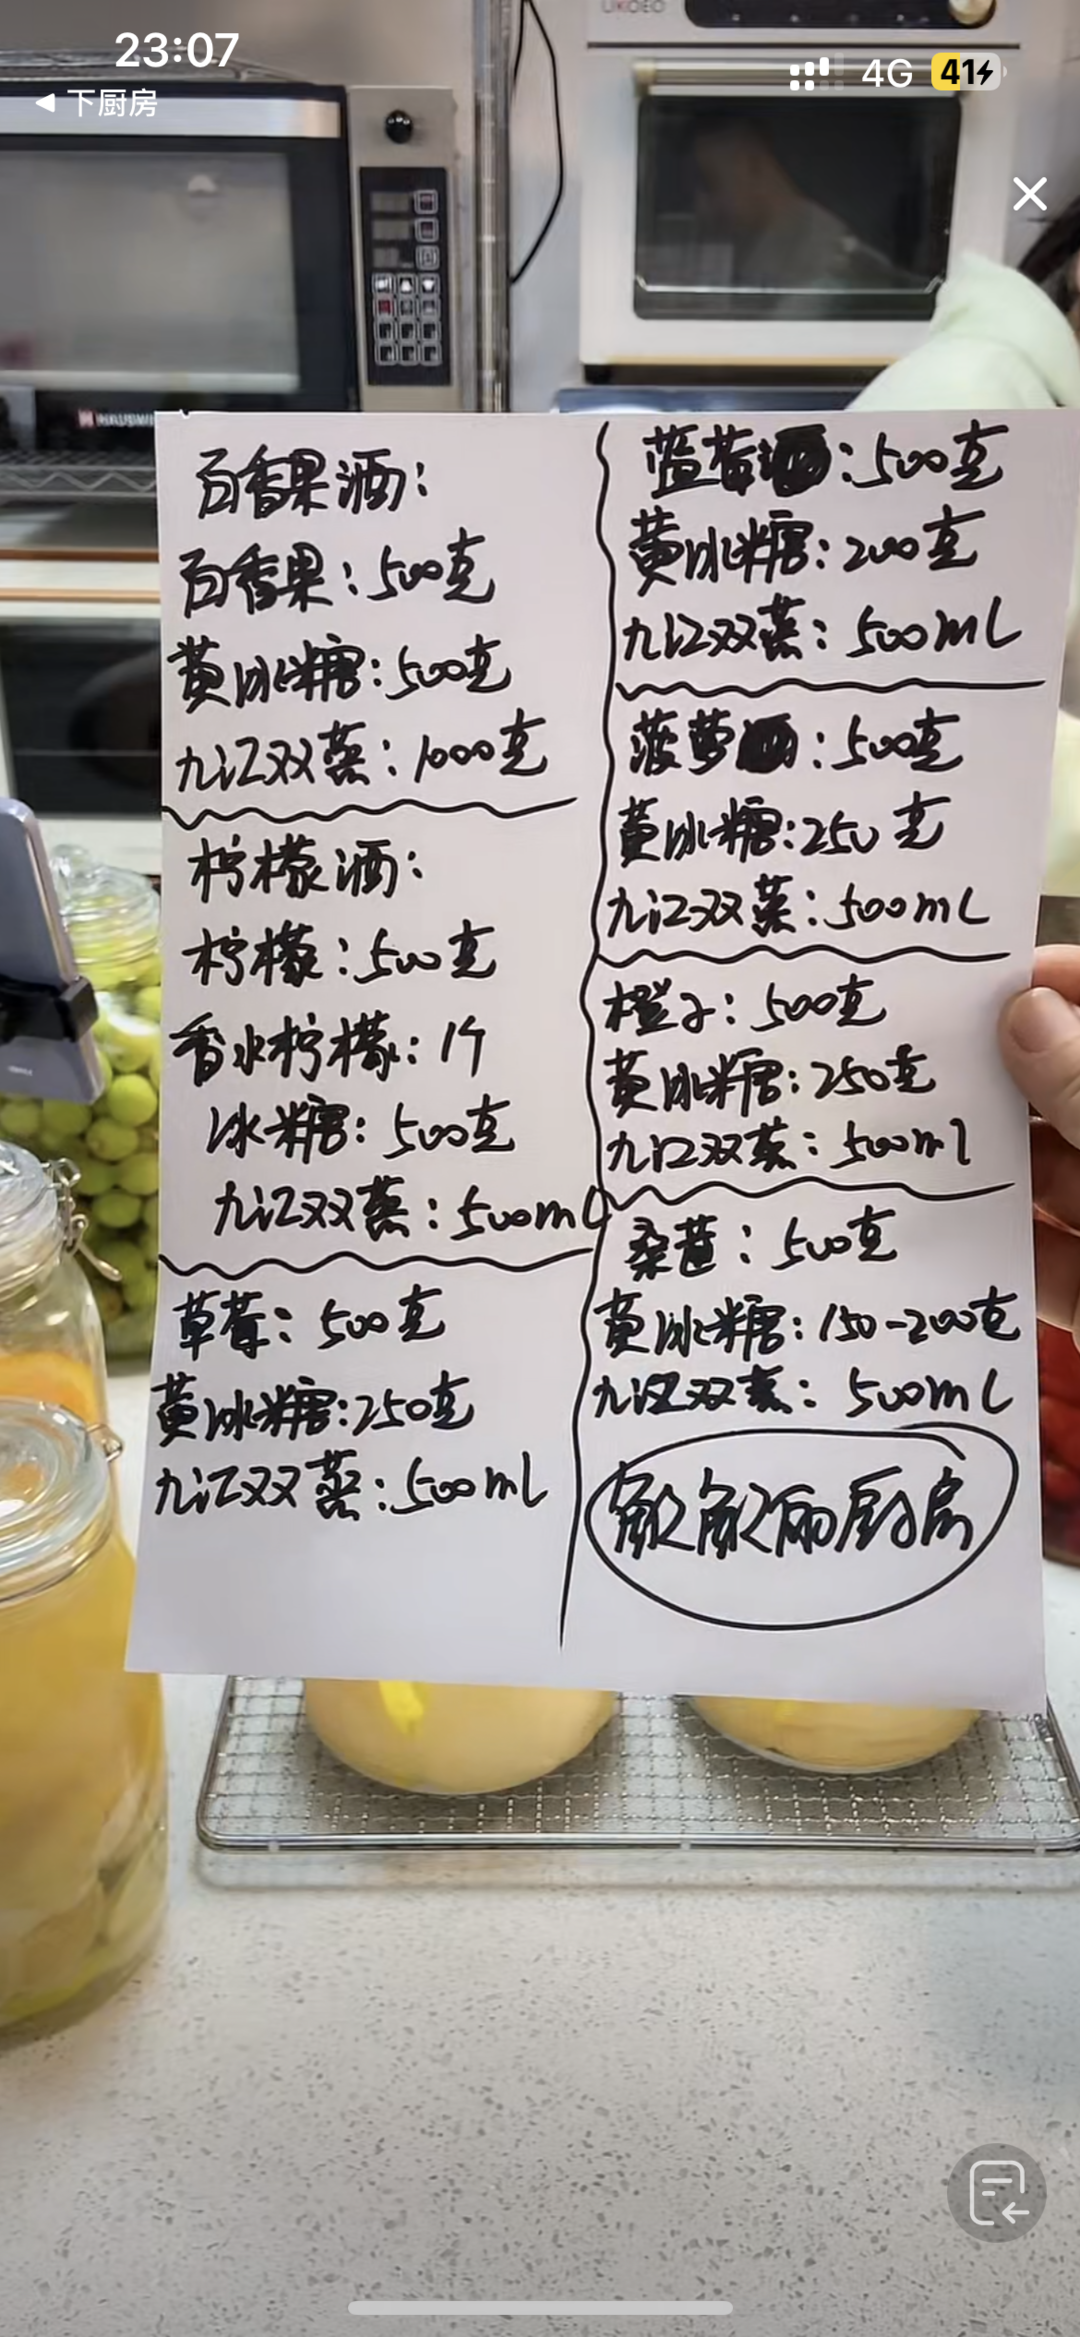 23:07
4G
41
下厨房
UKOEO
百香果酒:
百香果:500克
黄冰糖:500克
九江双蒸:1000克
柠檬酒:
柠檬:500克
香水柠檬:1个
冰糖:500克
九江双蒸:500mL
草莓:500克
黄冰糖:250克
九江双蒸:500mL
蓝莓:500克
黄冰糖:200克
九江双蒸:500mL
菠萝:500克
黄冰糖:250克
九江双蒸:500mL
橙子:500克
黄冰糖:250克
九江双蒸:500ml
桑葚:500克
黄冰糖:150-200克
九江双蒸:500mL
歆歆雨厨房